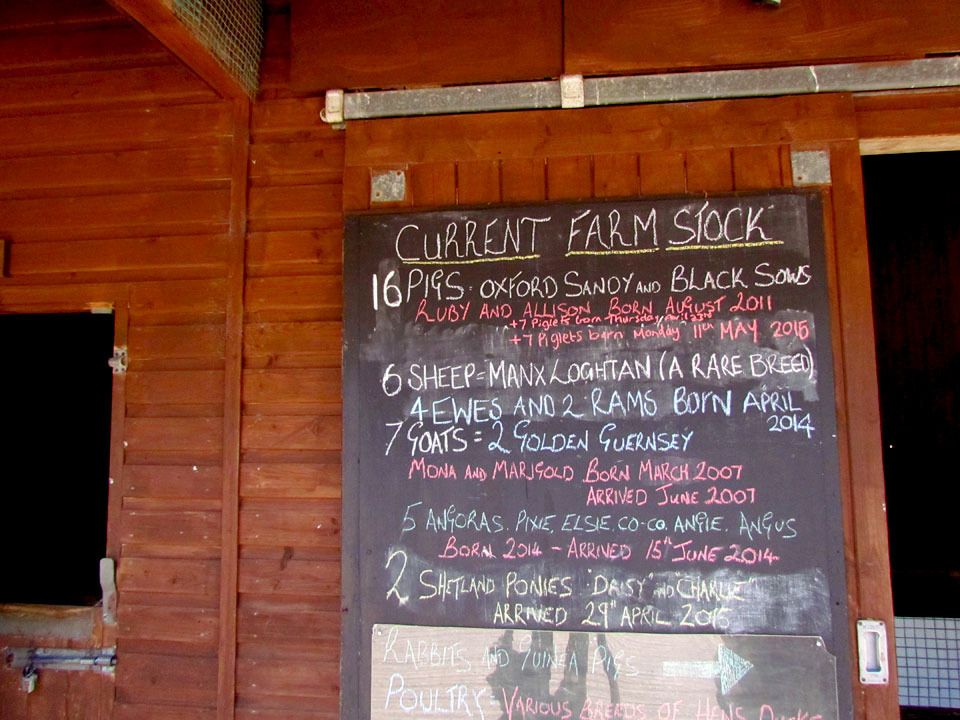 CURRENT FARM STOCK
16 PIGS - OXFORD SANDY AND BLACK SOWS
RUBY AND ALLISON BORN AUGUST 2011
+7 Piglets born Thursday April 23rd
+7 Piglets born Monday 11th MAY 2015
6 SHEEP = MANX LOGHTAN (A RARE BREED)
4 EWES AND 2 RAMS BORN APRIL
2014
7 GOATS = 2 GOLDEN GUERNSEY
MONA AND MARIGOLD BORN MARCH 2007
ARRIVED JUNE 2007
5 ANGORAS. PIXIE, ELSIE, CO-CO, ANGIE, ANGUS
BORN 2014 - ARRIVED 15th JUNE 2014
2 SHETLAND PONIES "DAISY" AND CHARLIE"
ARRIVED 29th APRIL 2015
RABBITS AND GUINEA PIGS
POULTRY = VARIOUS BREEDS OF HENS DUCKS